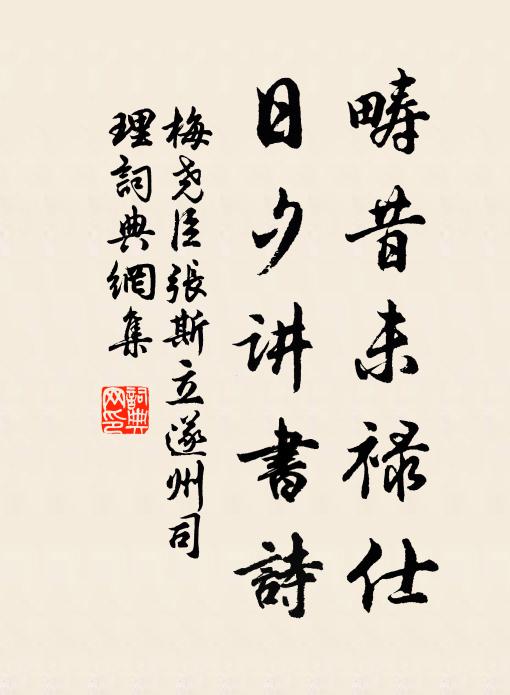 疇昔未禄仕
日夕讲書詩
梅尧臣張斯立遂州司
理詞典網集
詞典
网印